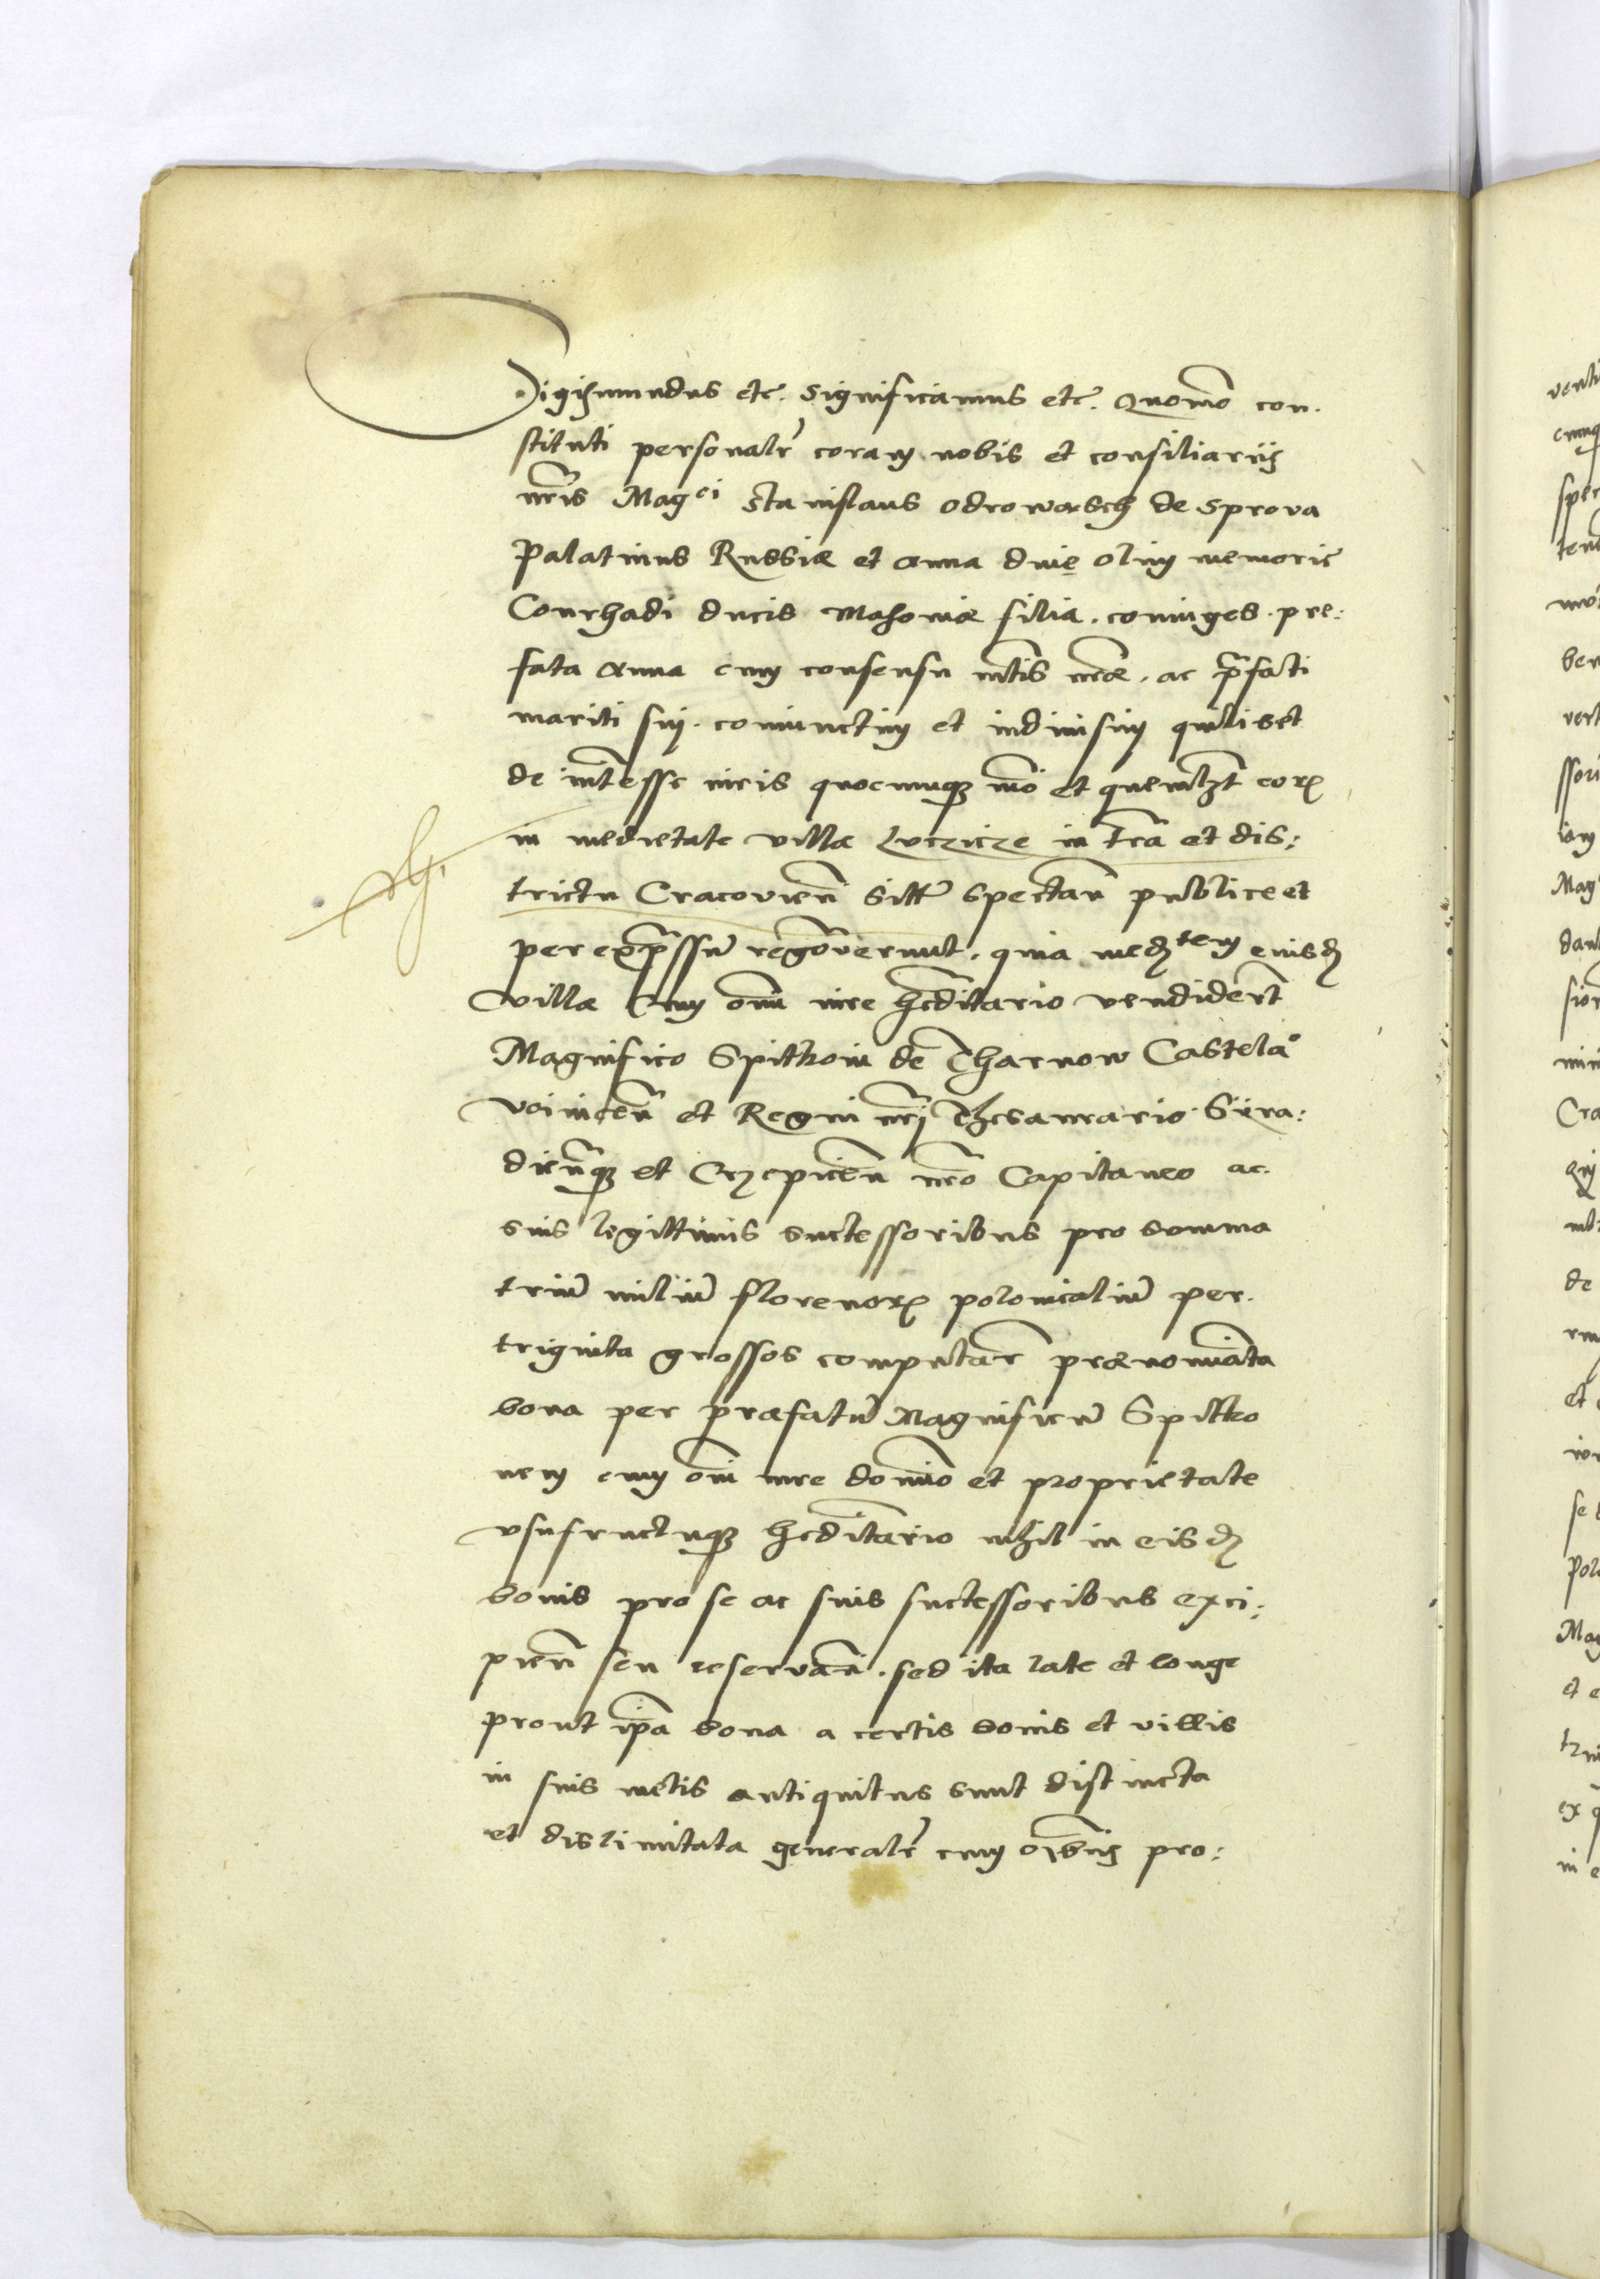 Sigismundus etc. Significamus etc. Quomo͞ con.
stituti personalr̃ coram nobis et consiliariis
nr̃is Magci Stanislaus Odrowasch de Sprova
Palatinus Russiæ et Anna diuę olim memorie
Conrhadi ducis Masoviæ filia. coniuges. pre:
fata Anna cum consensu mt͠is nr̃æ. ac p͠rfati
mariti sui. coniunctim et indiuisim quilibet
de int͠eresse iuris quocunque mo͠ et quemlzt̃ eorꝫ
in medietate villæ Luczicze in tr̃a et dis:
trictu Cracovien̄ sitæ spectan̄ publice et
per exp͠ressum recog͠overunt. quia medtem eiusdꝫ
villæ cum omi͠ iure hr̃editario vendider͠t
Magnifico Spitkoni de Tharnow Castelao
Voinicen̄ et Regni nr̃i Thesaurario Sira:
dien̄que et Crzepicen̄ nr̃o Capitaneo ac.
suis legittimis successoribus pro somma
trium̄ milium̄ florenorꝫ polonicalium̄ per.
triginta grossos computan̄ prænominata
bona per præfatum̄ Magnificum̄ Spitko
nem cum om̄i iure dominio et proprietate
vsufructuque hr̃editario nihil in eisdꝫ
bonis pro se ac suis successoribus exci:
pien̄ seu reservan̄. sed ita late et longe
prout ip͠a bona a certis bonis et villis
in suis metis antiquitus sunt distincta
et dislimitata generalr̃ cum oi͠bus pro: